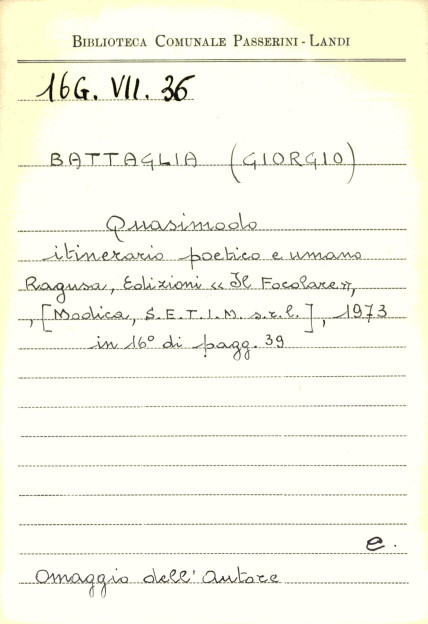 BIBLIOTECA COMUNALE PASSERINI - LANDI
16G. VII. 36
BATTAGLIA (GIORGIO)
Quasimodo
itinerario poetico e umano
Ragusa, Edizioni « Il Focolare»,
, [Modica, S.E.T.I.M. s.r.l.], 1973
in 16° di pagg. 39
e.
Omaggio dell'Autore